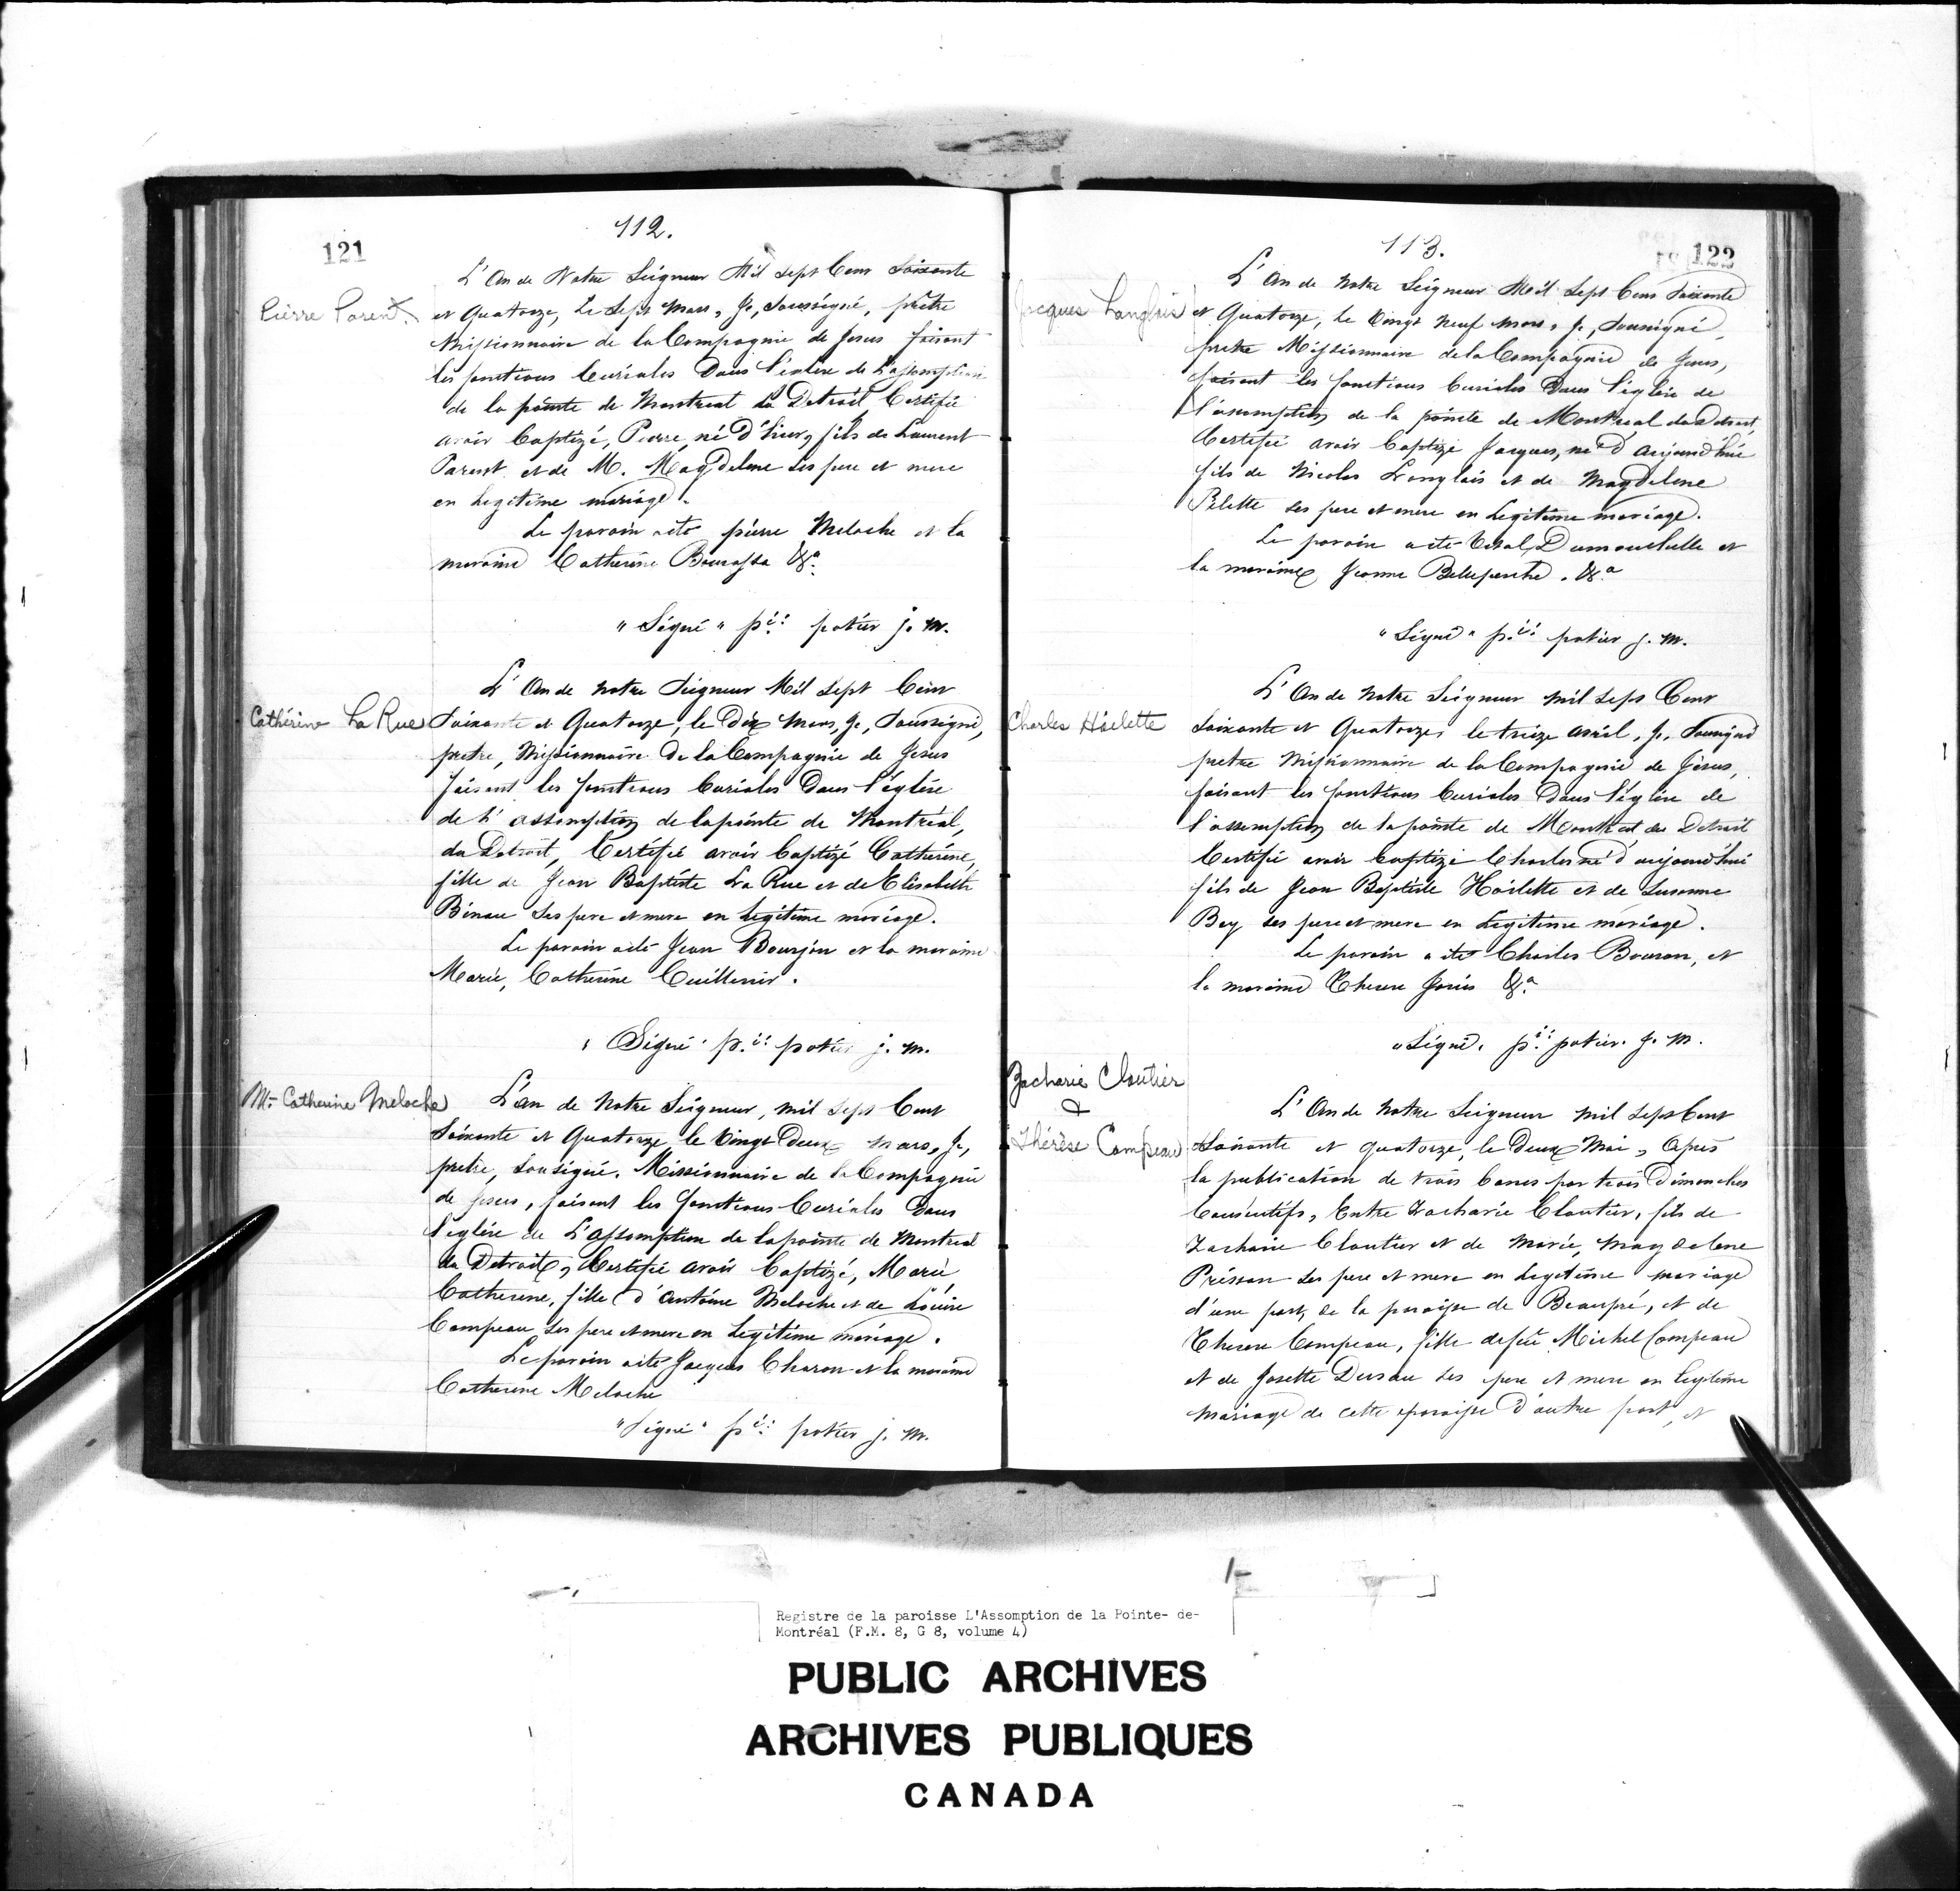 121
112.
Pierre Parent.
L'An de Notre Seigneur Mil sept Cent Soixante
et Quatorze, Le Sept Mars, Je, Soussigné, prêtre
Missionnaire de la Compagnie de Jesus faisant
les fonctions Curiales Dans l'église de L'assomption
de la pointe de Montreal du Detroit Certifie
avoir Baptizé, Pierre, né D'hier, fils de Laurent
Parent et de M. Magdelene ses pere et mere
en Legitime mariage.
Le parain a été pierre Meloche et la
maraine Catherine Bourassa &a.
"Signé" p.i: potier j. m.
Cathérine La Rue
L'An de Notre Seigneur Mil Sept Cent
Soixante et Quatorze, le Dix Mars, Je, Soussigné,
pretre, Missionnaire De la Compagnie de Jesus
faisant les fonctions Curiales Dans l'église
de L'assomption de la pointe de Montréal,
du Detroit, Certifié avoir Baptizé Catherine,
fille de Jean Baptiste La Rue et de Elisabeth
Binau ses pere et mere en Legitime mariage.
Le parain a été Jean Bourjon et la maraine
Marie, Catherine Cuillerier.
"Signé" p.i: potier j. m.
M.- Catherine Meloche
L'an de Notre Seigneur, mil sept Cent
Soixante et Quatorze, le Vingt Deux Mars, Je,
pretre, Sousigné, Missionnaire de la Compagnie
de Jesus, faisant les fonctions Curiales Dans
l'église de L'assomption de la pointe de Montreal
du Detroit, Certifié avoir Baptizé, Marie,
Catherine, fille d'Antoine Meloche et de Louise
Campeau, ses pere et mere en Legitime mariage.
Le parain a été Jacques Charon et la maraine
Catherine Meloche
"Signé" p.i: potier j. m.
122
113.
Jacques Langlois
L'An de Notre Seigneur Mil Sept Cens Soixante
et Quatorze, le Vingt Neuf Mars, Je, Sousigné,
pretre Missionnaire de la Compagnie de Jesus,
faisant les fonctions Curiales Dans l'église de
l'assomption de la pointe de Montreal du Detroit,
Certifié avoir Baptizé Jacques, né d'aujourd'hui
fils de Nicolas Langlois et de Magdelene
Pilette ses pere et mere en Legitime mariage.
Le parain a été Vital Dumouchelle et
la maraine Jeanne Belleperche. &a
"Signé" p.i: potier j. m.
Charles Höelette
L'An de Notre Seigneur mil Sept Cent
Soixante et Quatorze, le treize avril, Je, Sousigné
pretre Missionnaire de la Compagnie de Jesus,
faisant les fonctions Curiales Dans l'église de
l'assomption de la pointe de Montreal du Detroit
Certifié avoir Baptizé Charles né d'aujourd'hui
fils de Jean Baptiste Höelette et de Susanne
Bey ses pere et mere en Legitime mariage.
Le parain a été Charles Bouron, et
la maraine Therese &a
"Signé" p.i: potier. j. m.
Zacharie Cloutier
&
Thérèse Campeau
L'An de Notre Seigneur mil Sept Cent
Soixante et quatorze, le Deux Mai, Apres
la publication de trois bancs par trois Dimanches
Consécutifs, Entre Zacharie Cloutier, fils de
Zacharie Cloutier et de Marie, Magdelene
ses pere et mere en Legitime mariage
d'une part, de la paroisse de Beaupré, et de
Therese Campeau, fille defeu Michel Campeau
et de Josette ses pere et mere en legitime
Mariage de cette paroisse D'autre part, et
Registre de la paroisse L'Assomption de la Pointe- de-
Montréal (F.M. 8, G 8, volume 4)
PUBLIC ARCHIVES
ARCHIVES PUBLIQUES
CANADA